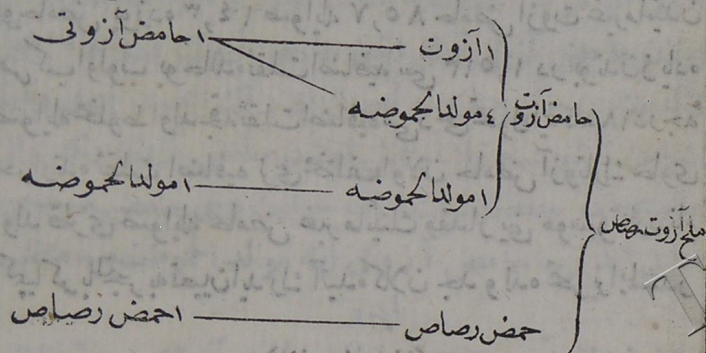 ١ آزوت ١ حامض آزوتى
٤ مولد الحموضه
حامض آزوت
١ مولد الحموضه ١ مولد الحموضه
ملح آزوت رصاص
حمض رصاص ١ حمض رصاص